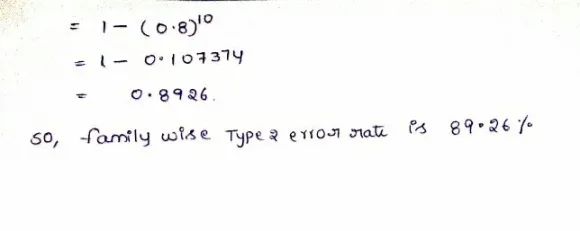 = 1 - (0.8)¹⁰
= 1 - 0.107374
= 0.8926.
so, family wise Type 2 error rate is 89.26%